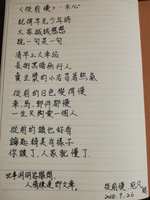 《從前慢》-木心
記得早先少年時
大家誠誠懇懇
說一句是一句
清早上火車站
長街黑暗無行人
賣豆漿的小店冒著熱氣
從前的日色變得慢
車,馬,郵件都慢
一生只夠愛一個人
從前的鎖也好看
鑰匙精美有樣子
你鎖了,人家就懂了
世事洞明皆學問
人情練達即文章
2020.9.26